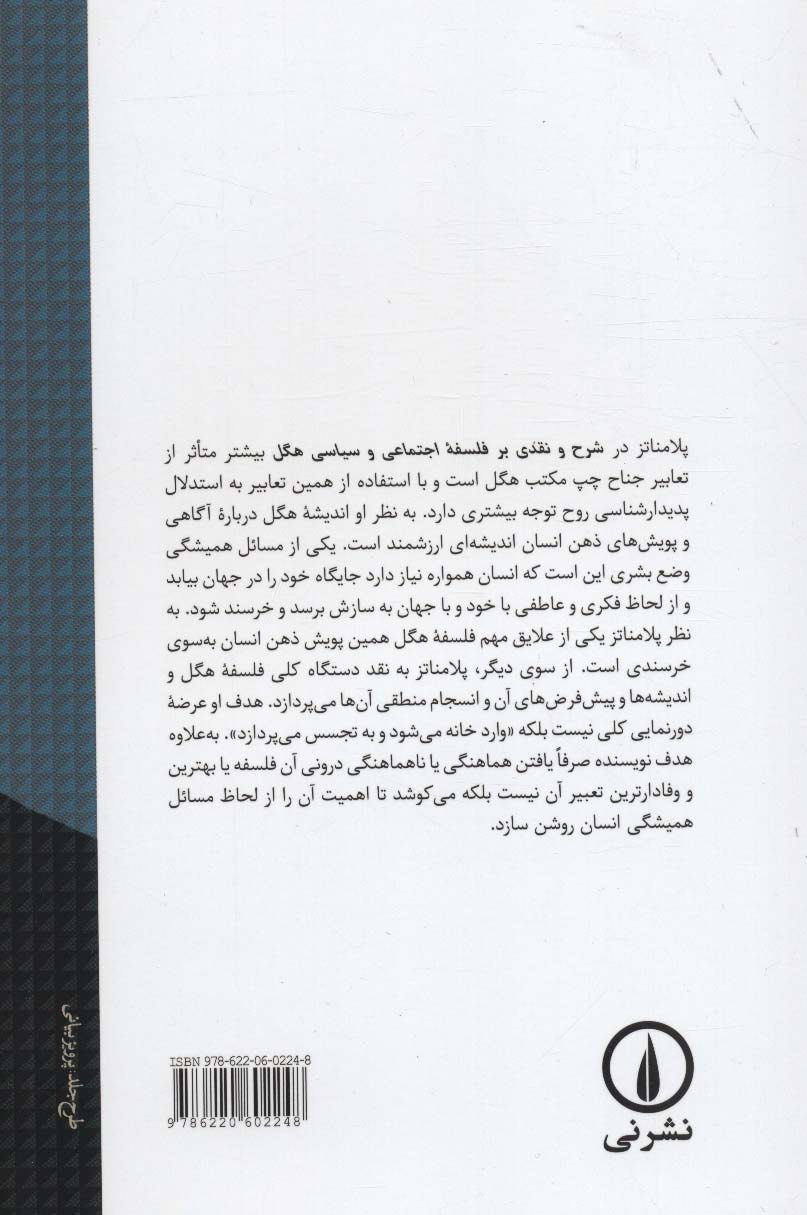 پلامناتز در شرح و نقدی بر فلسفهٔ اجتماعی و سیاسی هگل بیشتر متأثر از
تعابیر جناح چپ مکتب هگل است و با استفاده از همین تعابیر به استدلال
پدیدارشناسی روح توجه بیشتری دارد. به نظر او اندیشهٔ هگل دربارهٔ آگاهی
و پویش‌های ذهن انسان اندیشه‌ای ارزشمند است. یکی از مسائل همیشگی
وضع بشری این است که انسان همواره نیاز دارد جایگاه خود را در جهان بیابد
و از لحاظ فکری و عاطفی با خود و با جهان به سازش برسد و خرسند شود. به
نظر پلامناتز یکی از علایق مهم فلسفهٔ هگل همین پویش ذهن انسان به‌سوی
خرسندی است. از سوی دیگر، پلامناتز به نقد دستگاه کلی فلسفهٔ هگل و
اندیشه‌ها و پیش‌فرض‌های آن و انسجام منطقی آن‌ها می‌پردازد. هدف او عرضهٔ
دورنمایی کلی نیست بلکه «وارد خانه می‌شود و به تجسس می‌پردازد». به‌علاوه
هدف نویسنده صرفاً یافتن هماهنگی یا ناهماهنگی درونی آن فلسفه یا بهترین
و وفادارترین تعبیر آن نیست بلکه می‌کوشد تا اهمیت آن را از لحاظ مسائل
همیشگی انسان روشن سازد.
طرح جلد: پرویز بیانی
ISBN 978-622-06-0224-8
9 786220 602248
نشرنی